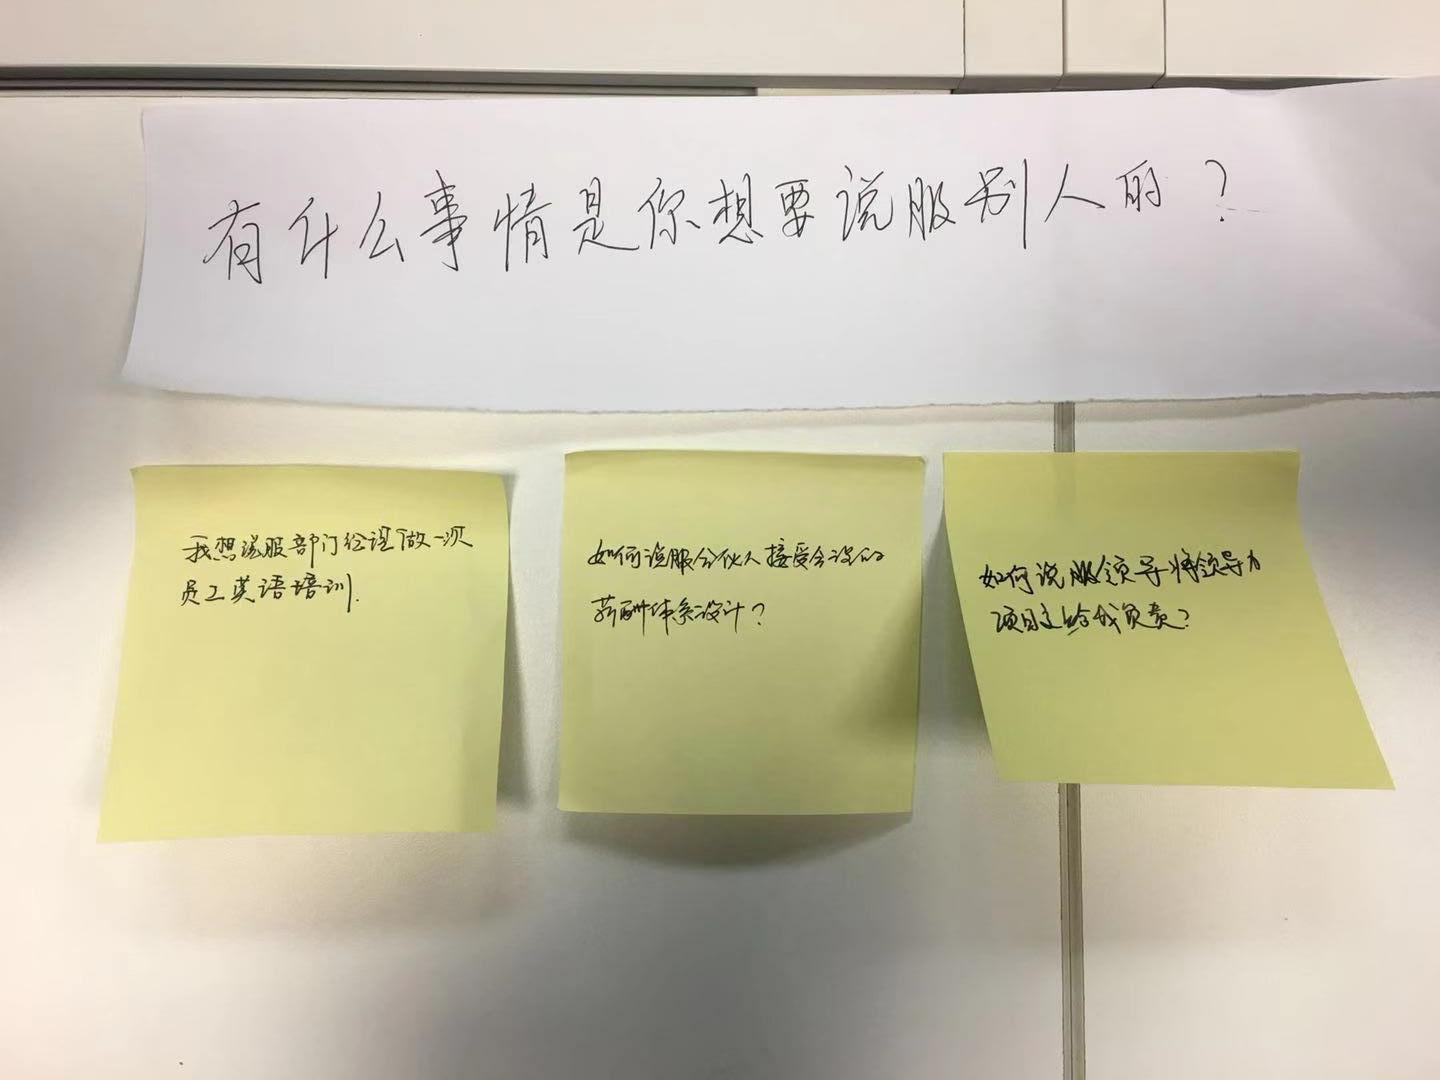 有什么事情是你想要说服别人的？
我想说服部门经理做一次
员工英语培训.
如何说服合伙人接受合设的
薪酬体系设计？
如何说服领导将领导力
项目交给我负责？